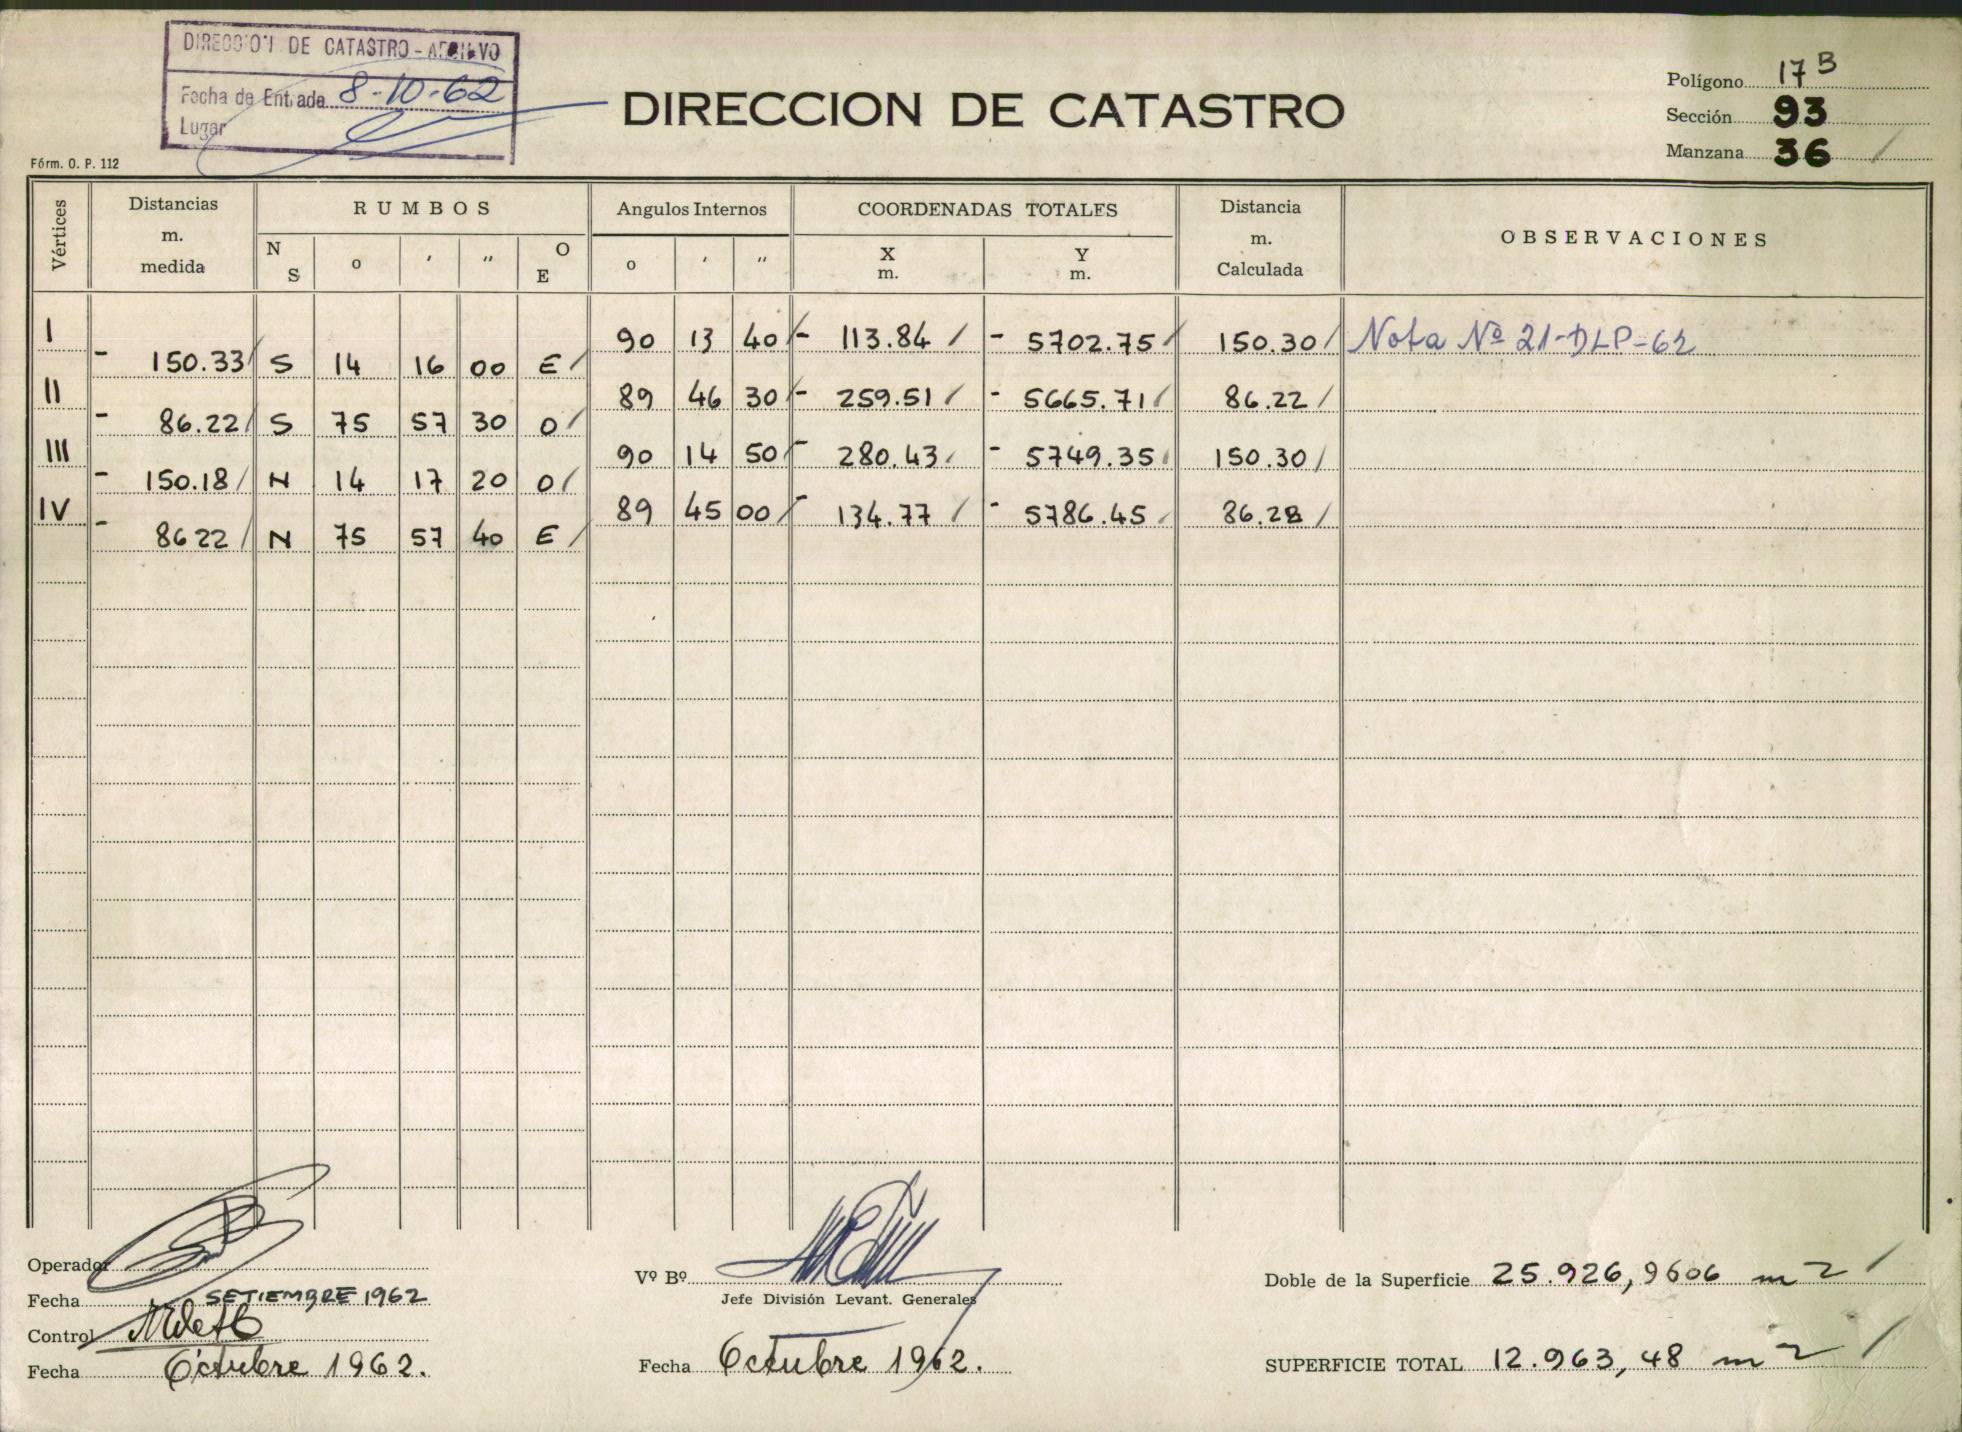 DIRECCION DE CATASTRO - ARCHIVO
Fecha de Entrada 8-10-62
Lugar
DIRECCION DE CATASTRO
Polígono 17 B
Sección 93
Manzana 36
Fórm. O. P. 112
Vértices
Distancias m. medida
RUMBOS
Angulos Internos
COORDENADAS TOTALES
Distancia m. Calculada
OBSERVACIONES
N S o ' " O E
o ' "
X m. Y m.
I 90 13 40 - 113.84 - 5702.75 150.30 Nota Nº 21-DLP-62
- 150.33 S 14 16 00 E
II 89 46 30 - 259.51 - 5665.71 86.22
- 86.22 S 75 57 30 O
III 90 14 50 - 280.43 - 5749.35 150.30
- 150.18 N 14 17 20 O
IV 89 45 00 - 134.77 - 5786.45 86.28
- 86 22 N 75 57 40 E
Operador
Fecha SETIEMBRE 1962
Control
Fecha Octubre 1962.
Vº Bº
Jefe División Levant. Generales
Fecha Octubre 1962.
Doble de la Superficie 25.926,9606 m2
SUPERFICIE TOTAL 12.963,48 m2